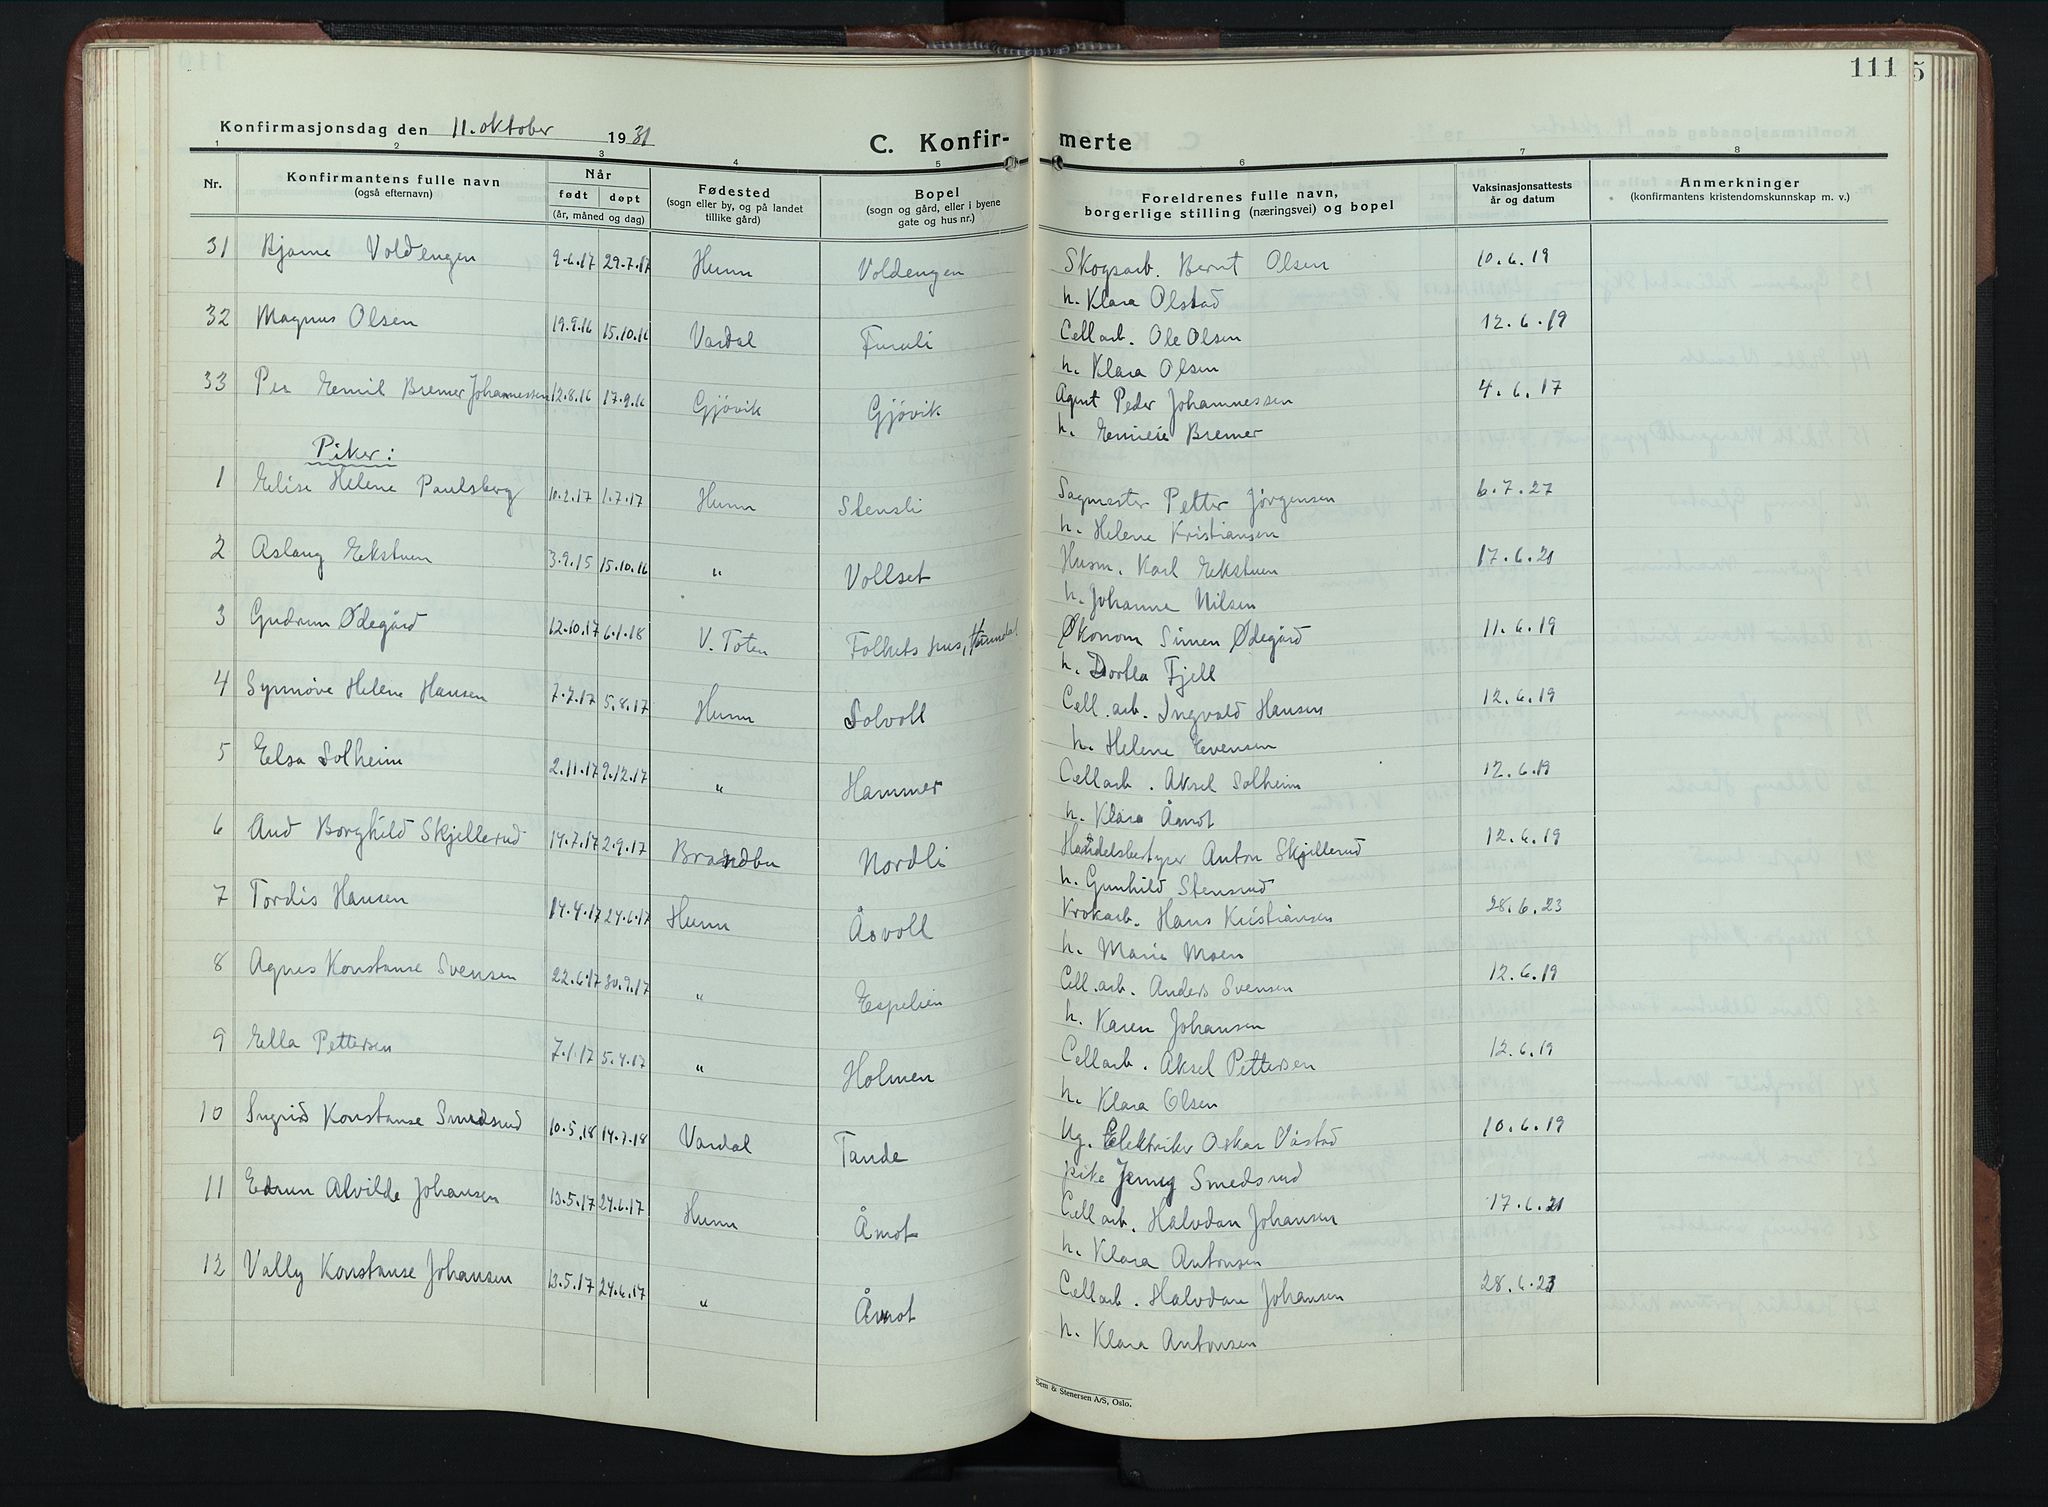 111 5
Konfirmasjonsdag den 11. oktober 1931
C. Konfir- merte
1 2 3 4 5 6 7 8
Nr. Konfirmantens fulle navn (også efternavn) Når født døpt (år, måned og dag) Fødested (sogn eller by, og på landet tillike gård) Bopel (sogn og gård, eller i byene gate og hus nr.) Foreldrenes fulle navn, borgerlige stilling (næringsvei) og bopel Vaksinasjonsattests år og datum Anmerkninger (konfirmantens kristendomskunnskap m. v.)
31 Bjarne Voldengen 9-6.17 29.7.17 Hunn Voldengen Skogsarb. Bernt Olsen 10.6.19
h. Klara Olstad
32 Magnus Olsen 19.9.16 15.10.16 Vardal Furuli Cellarb. Ole Olsen 12.6.19
h. Klara Olsen
33 Per Emil Bremer Johannessen 12.8.16 17.9.16 Gjøvik Gjøvik Agent Peder Johannessen 4.6.17
h. Bremer
Piker:
1 Elise Helene Paulsberg 10.2.17 1.7.17 Hunn Stensli Sagmester Petter Jørgensen 6.7.27
h. Helene Kristiansen
2 Aslaug Ekstuen 3.9.15 15.10.16 " Vollset Husm. Karl Ekstuen 17.6.21
h. Johanne Nilsen
3 Gudrun Ødegård 12.10.17 6.1.18 V. Toten Folkets hus, Hunndal Økonom Simen Ødegård 11.6.19
h. Dortea Fjell
4 Synnøve Helene Hansen 7.7.17 5.8.17 Hunn Solvoll Cell.arb. Ingvald Hansen 12.6.19
h. Helene Evensen
5 Elsa Solheim 2.11.17 9.12.17 " Hammer Cellarb. Aksel Solheim 12.6.19
h. Klara Åmot
6 Aud Borghild Skjellerud 14.7.17 2.9.17 Brandbu Nordli Handelsbestyrer Anton Skjellerud 12.6.19
h. Gunhild Stensrud
7 Tordis Hansen 14.4.17 24.6.17 Hunn Åsvoll Krokarb. Hans Kristiansen 28.6.23
h. Marie Moen
8 Agnes Konstanse Svensen 22.6.17 30.9.17 " Espelien Cell.arb. Anders Svensen 12.6.19
h. Karen Johansen
9 Ella Pettersen 7.1.17 5.4.17 " Holmen Cellarb. Aksel Pettersen 12.6.19
h. Klara Olsen
10 Ingrid Konstanse Smedsrud 10.5.18 14.7.18 Vardal Tande Ug. Elektriker Oskar Våstad 10.6.19
pike Jenny Smedsrud
11 Edrun Alvilde Johansen 13.5.17 24.6.17 Hunn Åmot Cellarb. Halvdan Johansen 17.6.21
h. Klara Antonsen
12 Vally Konstanse Johansen 13.5.17 24.6.17 " Åmot Cellarb. Halvdan Johansen 28.6.23
h. Klara Antonsen
Sem & Stenersen A/S, Oslo.